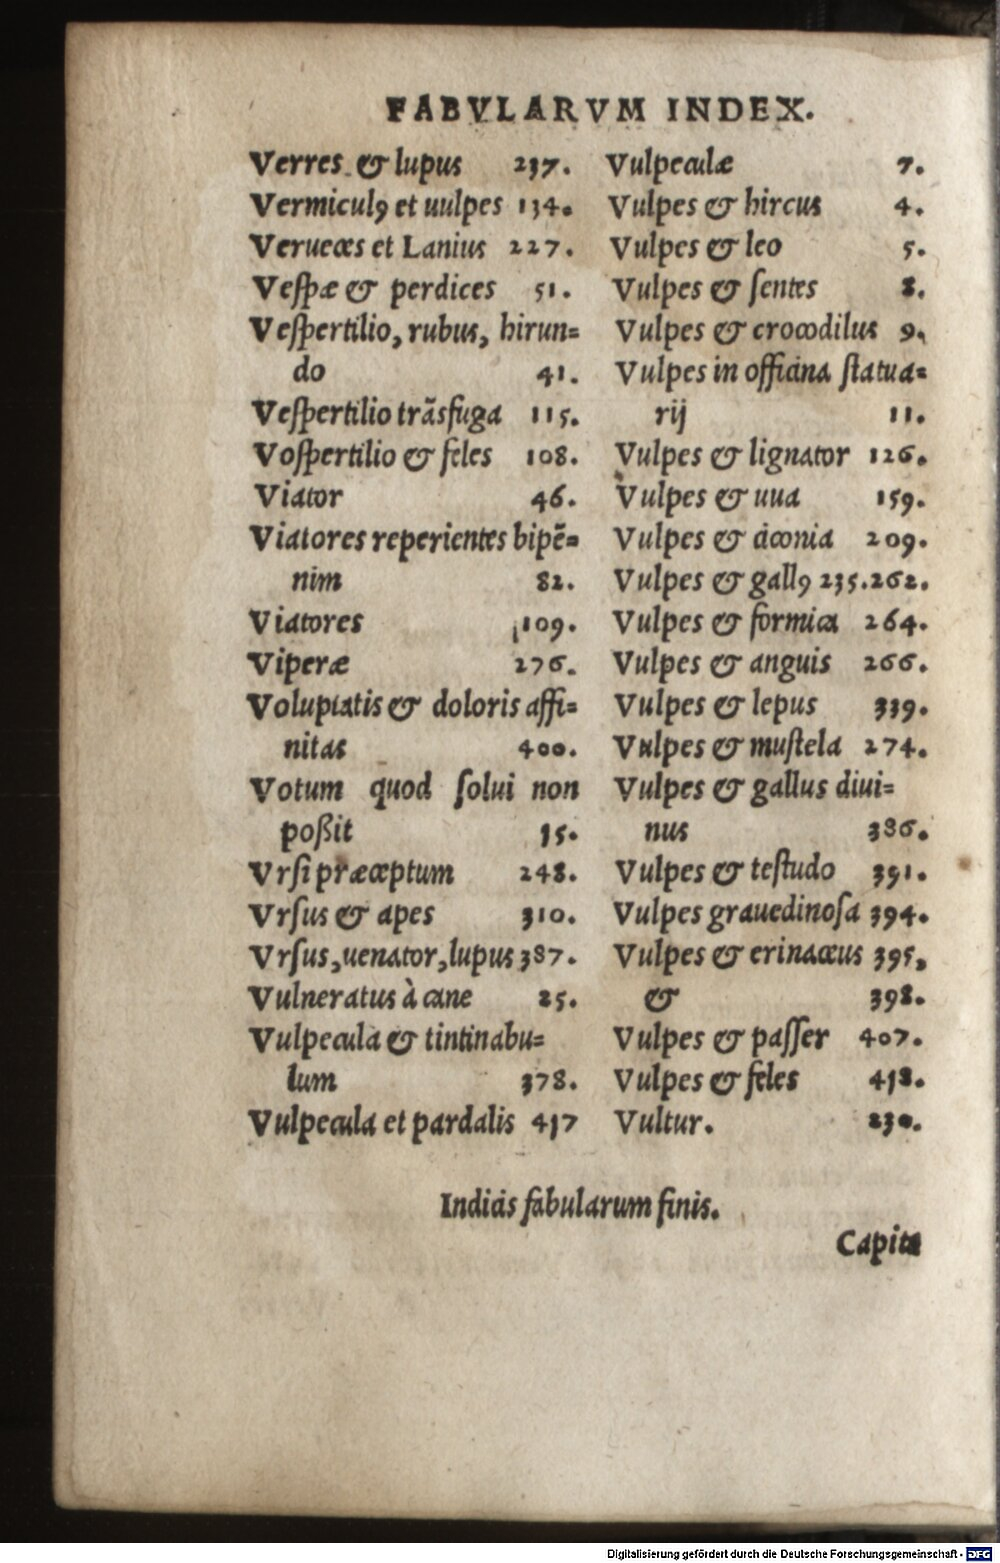 FABVLARVM INDEX.
Verres & lupus 237.
Vermiculꝰ et uulpes 134.
Verueces et Lanius 227.
Veſpæ & perdices 51.
Veſpertilio, rubus, hirun=
do 41.
Veſpertilio trãsfuga 115.
Voſpertilio & feles 108.
Viator 46.
Viatores reperientes bipẽ=
nim 82.
Viatores 109.
Viperæ 276.
Voluptatis & doloris affi=
nitas 400.
Votum quod ſolui non
poßit 15.
Vrſi præceptum 248.
Vrſus & apes 310.
Vrſus, uenator, lupus 387.
Vulneratus à cane 25.
Vulpecula & tintinabu=
lum 378.
Vulpecula et pardalis 417
Vulpeculæ 7.
Vulpes & hircus 4.
Vulpes & leo 5.
Vulpes & ſentes 8.
Vulpes & crocodilus 9.
Vulpes in officina ſtatua=
rij 11.
Vulpes & lignator 126.
Vulpes & uua 159.
Vulpes & ciconia 209.
Vulpes & gallꝰ 235.262.
Vulpes & formica 264.
Vulpes & anguis 266.
Vulpes & lepus 339.
Vulpes & muſtela 274.
Vulpes & gallus diui=
nus 386.
Vulpes & teſtudo 391.
Vulpes grauedinoſa 394.
Vulpes & erinaceus 395,
& 398.
Vulpes & paſſer 407.
Vulpes & feles 418.
Vultur. 230.
Indicis fabularum finis.
Capita
Digitalisierung gefördert durch die Deutsche Forschungsgemeinschaft - DFG